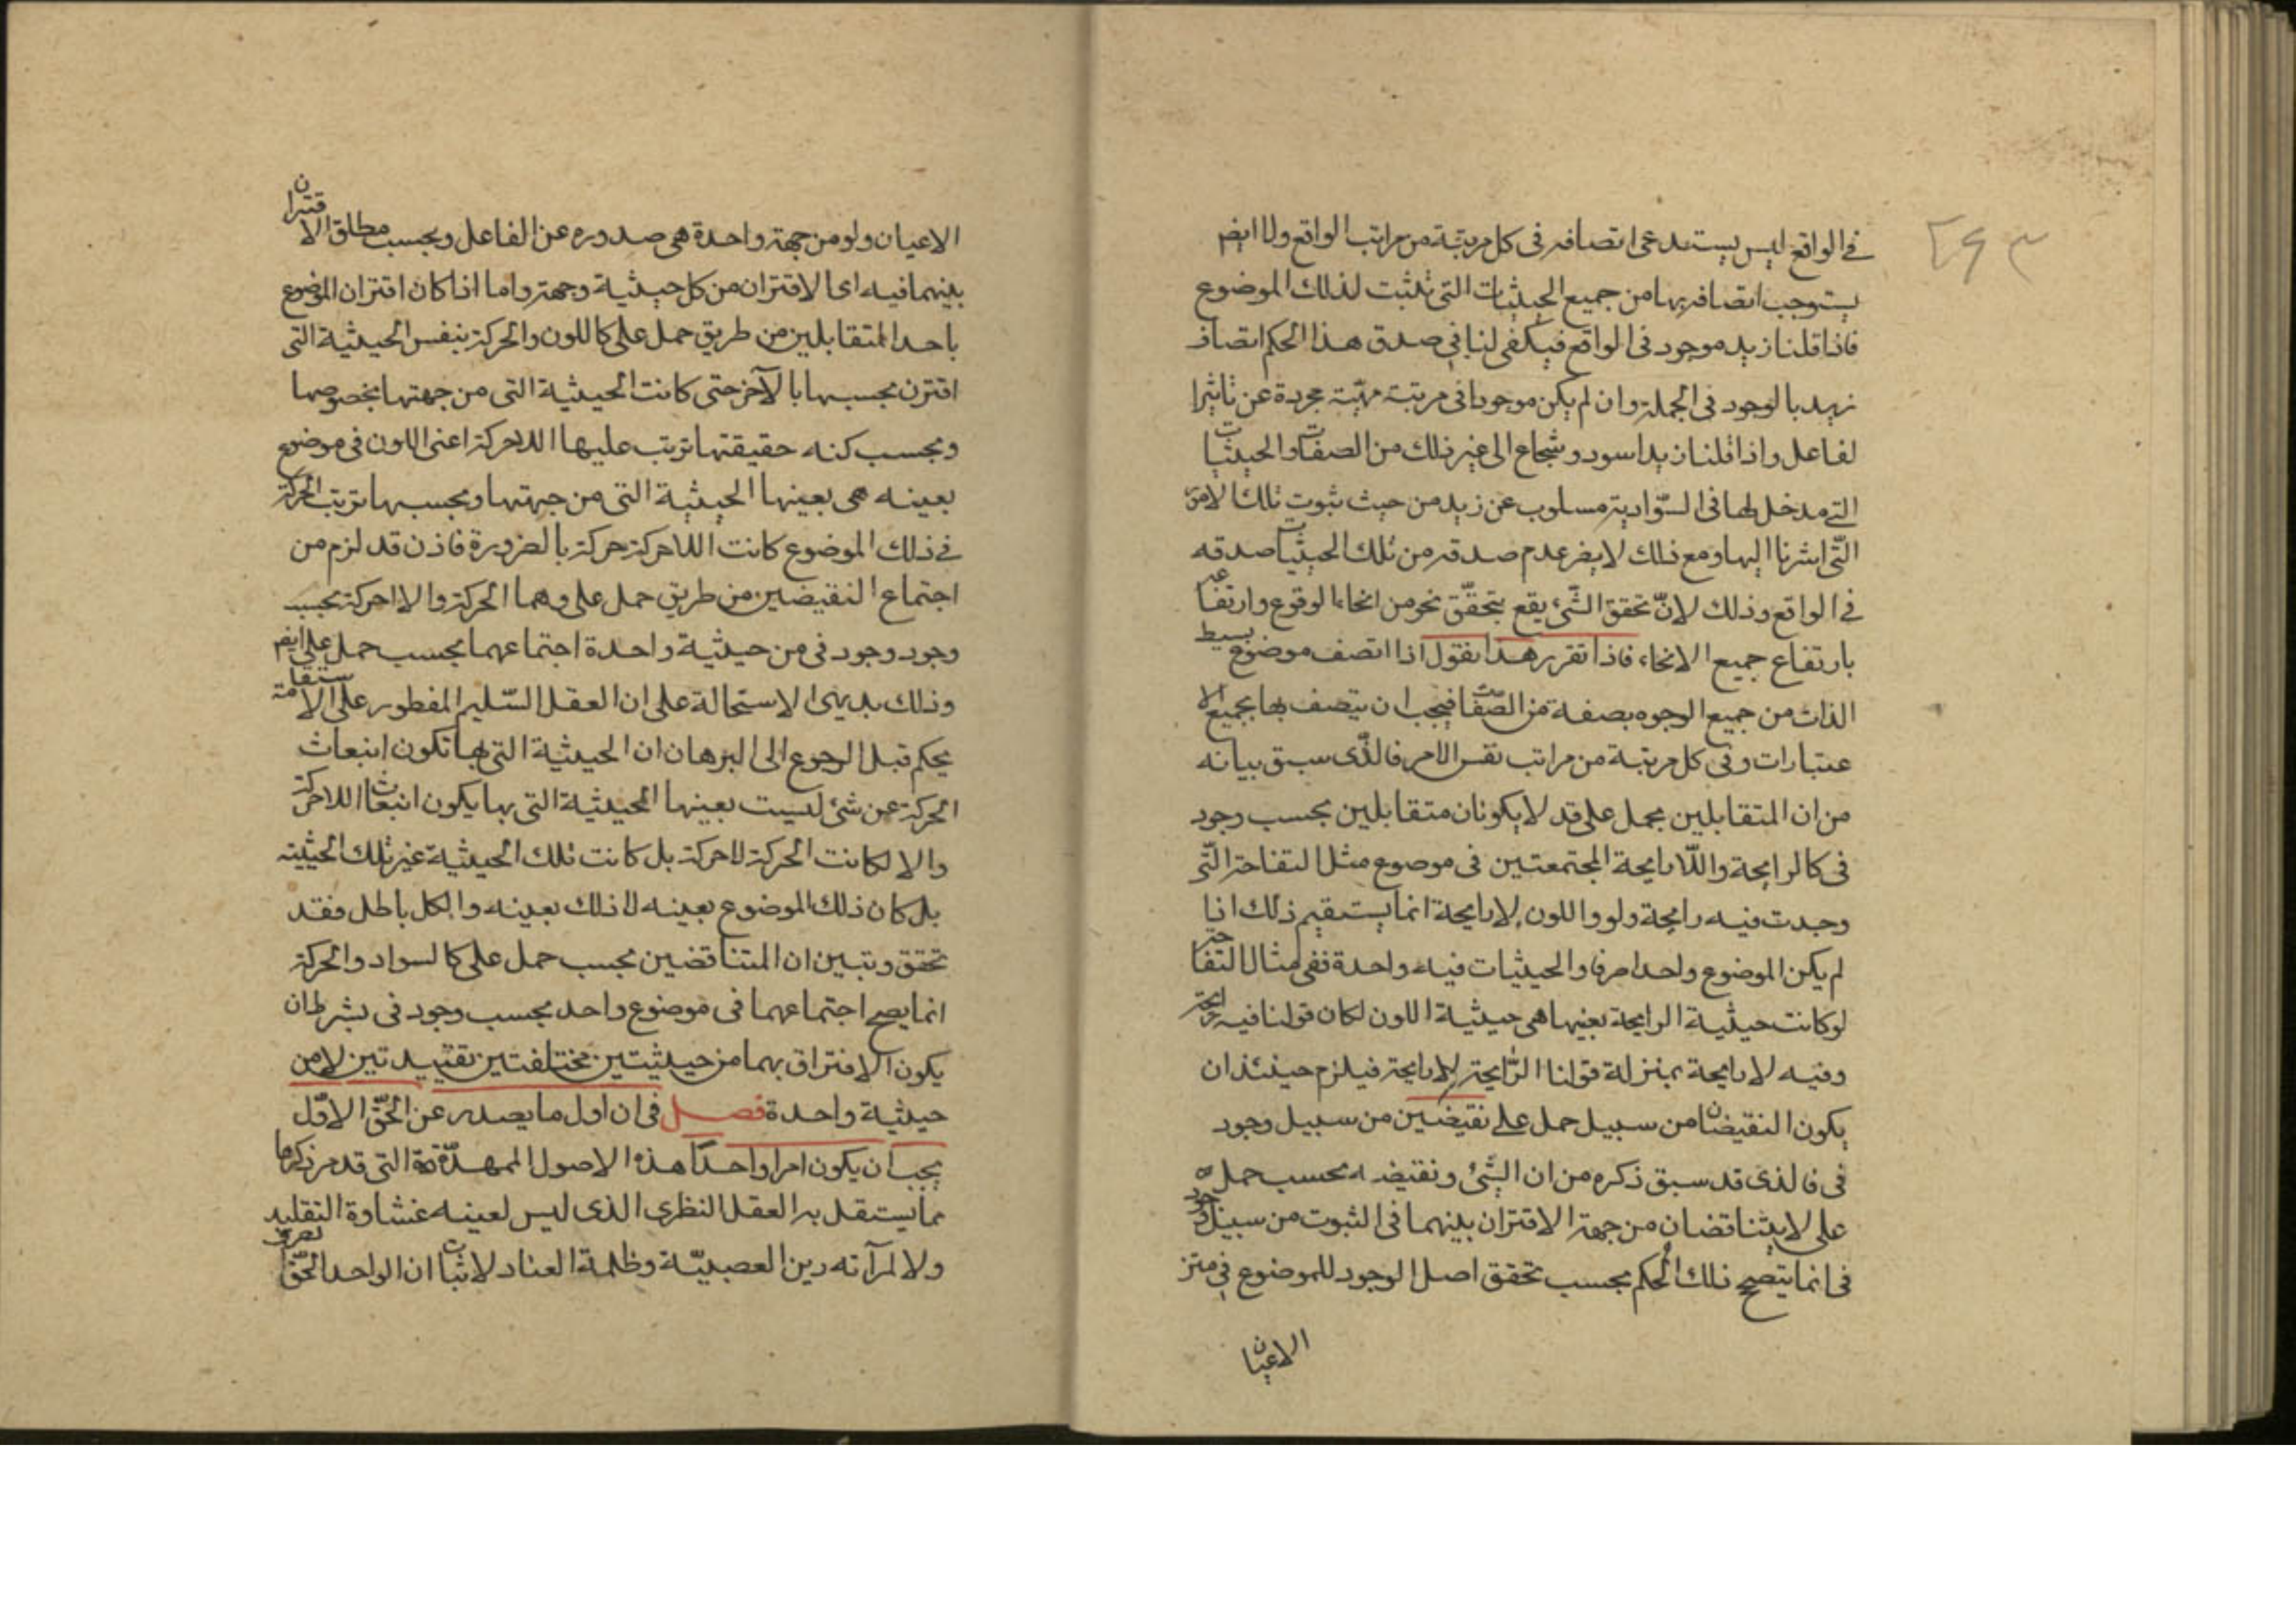 ٢٤٣
في الواقع ليس يستدعى اتصافه فى كل مرتبة من مراتب الواقع ولا ايضا
يستوجب اتصافه بها من جميع الحيثيات التى تثبت لذلك الموضوع
فاذا قلنا زيد موجود فى الواقع فيكفى لنا فى صدق هذا الحكم اتصاف
زيد بالوجود فى الجملة وان لم يكن موجودا فى مرتبة مهيّة مجردة عن تاثيرا
لفاعل واذا قلنا زيد اسود وشجاع الى غير ذلك من الصفات والحيثيات
التي مدخل لها فى السّوادية مسلوب عن زيد من حيث ثبوت تلك الامور
التّى اشرنا اليها ومع ذلك لا يضر عدم صدقه من تلك الحيثيات صدقه
في الواقع وذلك لانّ تحقق الشّئ يقع بتحقّق نحو من انحاء الوقوع وارتفاعه
بارتفاع جميع الانحاء فاذا تقرر هذا نقول اذا اتصف موضوع بسيط
الذات من جميع الوجوه بصفة من الصّفات فيجب ان يتصف بها بجميع الا
عتبارات وفى كل مرتبة من مراتب نفس الامر فالذّى سبق بيانه
من ان المتقابلين بحمل على قد لا يكونان متقابلين بحسب وجود
فى كالرايحة واللّارايحة المجتمعتين فى موضوع مثل التفاحة التّى
وجدت فيه رايحة ولو واللون لا رايحة انما يستقيم ذلك اذا
لم يكن الموضوع واحدا صرفا والحيثيات فيه واحدة ففى مثال التفاحة
لو كانت حيثية الرايحة بعينها هى حيثية اللون لكان قولنا فيه رايحة
وفيه لا رايحة بمنزلة قولنا الرّايحة لا رايحة فيلزم حينئذ ان
يكون النقيضان من سبيل حمل على نقيضين من سبيل وجود
فى فالذى قد سبق ذكره من ان الشّئ ونقيضه بحسب حمل
على لا يتناقضان من جهة الاقتران بينهما فى الثبوت من سبيل وجود
فى انما يتصحح ذلك الحكم بحسب تحقق اصل الوجود للموضوع فى متن
الاعيان
الاعيان ولو من جهة واحدة هى صدوره عن الفاعل وبحسب مطلق الاقتران
بينهما فيه اى الاقتران من كل حيثية وجهة واما اذا كان اقتران الموضوع
باحد المتقابلين من طريق حمل على كاللون والحركة بنفس الحيثية التى
اقترن بحسبها بالآخر حتى كانت الحيثية التى من جهتها بخصوصها
وبحسب كنه حقيقتها ترتب عليها اللاحركة اعنى اللون فى موضوع
بعينه هى بعينها الحيثية التى من جهتها وبحسبها ترتب الحركة
في ذلك الموضوع كانت اللاحركة حركة بالضرورة فاذن قد لزم من
اجتماع النقيضين من طريق حمل على وهما الحركة والاحركة بحسب
وجود وجود فى من حيثية واحدة اجتماعهما بحسب حمل على ايضا
وذلك بديهى الاستحالة على ان العقل السّليم المفطور على الاستقامة
يحكم قبل الرجوع الى البرهان ان الحيثية التى بها تكون انبعاث
الحركة عن شئ ليست بعينها الحيثية التى بها يكون انبعاث اللاحركة
والا لكانت الحركة لاحركة بل كانت تلك الحيثية غير تلك الحيثية
بل كان ذلك الموضوع بعينه لا ذلك بعينه والكل باطل فقد
تحقق وتبين ان المتناقضين بحسب حمل على كالسواد والحركة
انما يصح اجتماعهما فى موضوع واحد بحسب وجود فى بشرط ان
يكون الاقتراق بهما من حيثيتين مختلفتين تقييديتين لا من
حيثية واحدة فصل فى ان اول ما يصدر عن الحّق الاوّل
يجب ان يكون امرا واحدًا هذه الاصول الممهدّة التى قد مر ذكرها
مما يستقل به العقل النظرى الذى ليس لعينه غشاوة التقليد
ولا لمرآته رين العصبيّة وظلمة العناد لاثبات ان الواحد الحّق